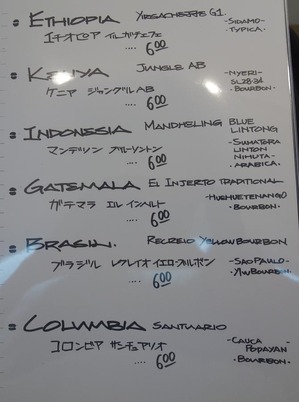 ETHIOPIA YIRGACHEFFE G1. -SIDAMO-
エチオピア イルガチェフェ -TYPICA-
.... 600
KENYA JUNGLE AB -NYERI-
ケニア ジャングルAB -SL28.34
.... 600 -BOURBON-
INDONESIA MANDHELING BLUE LINTONG
マンデリン ブルーリントン -SUMATORA
.... 600 LINTON
NIHUTA-
-ARABICA-
GATEMALA EL INJERTO TRADITIONAL
ガテマラ エル インヘルト -HUEHUETENANGO
.... 600 -BOURBON-
BRASIL. RECREIO YELLOW BOURBON
ブラジル レクレイオ イエローブルボン -SAO PAULO-
.... 600 -Y/W BOURBON-
COLUMBIA SANTUARIO
コロンビア サンチュアリオ -CAUCA
.... 600 POPAYAN
-BOURBON-